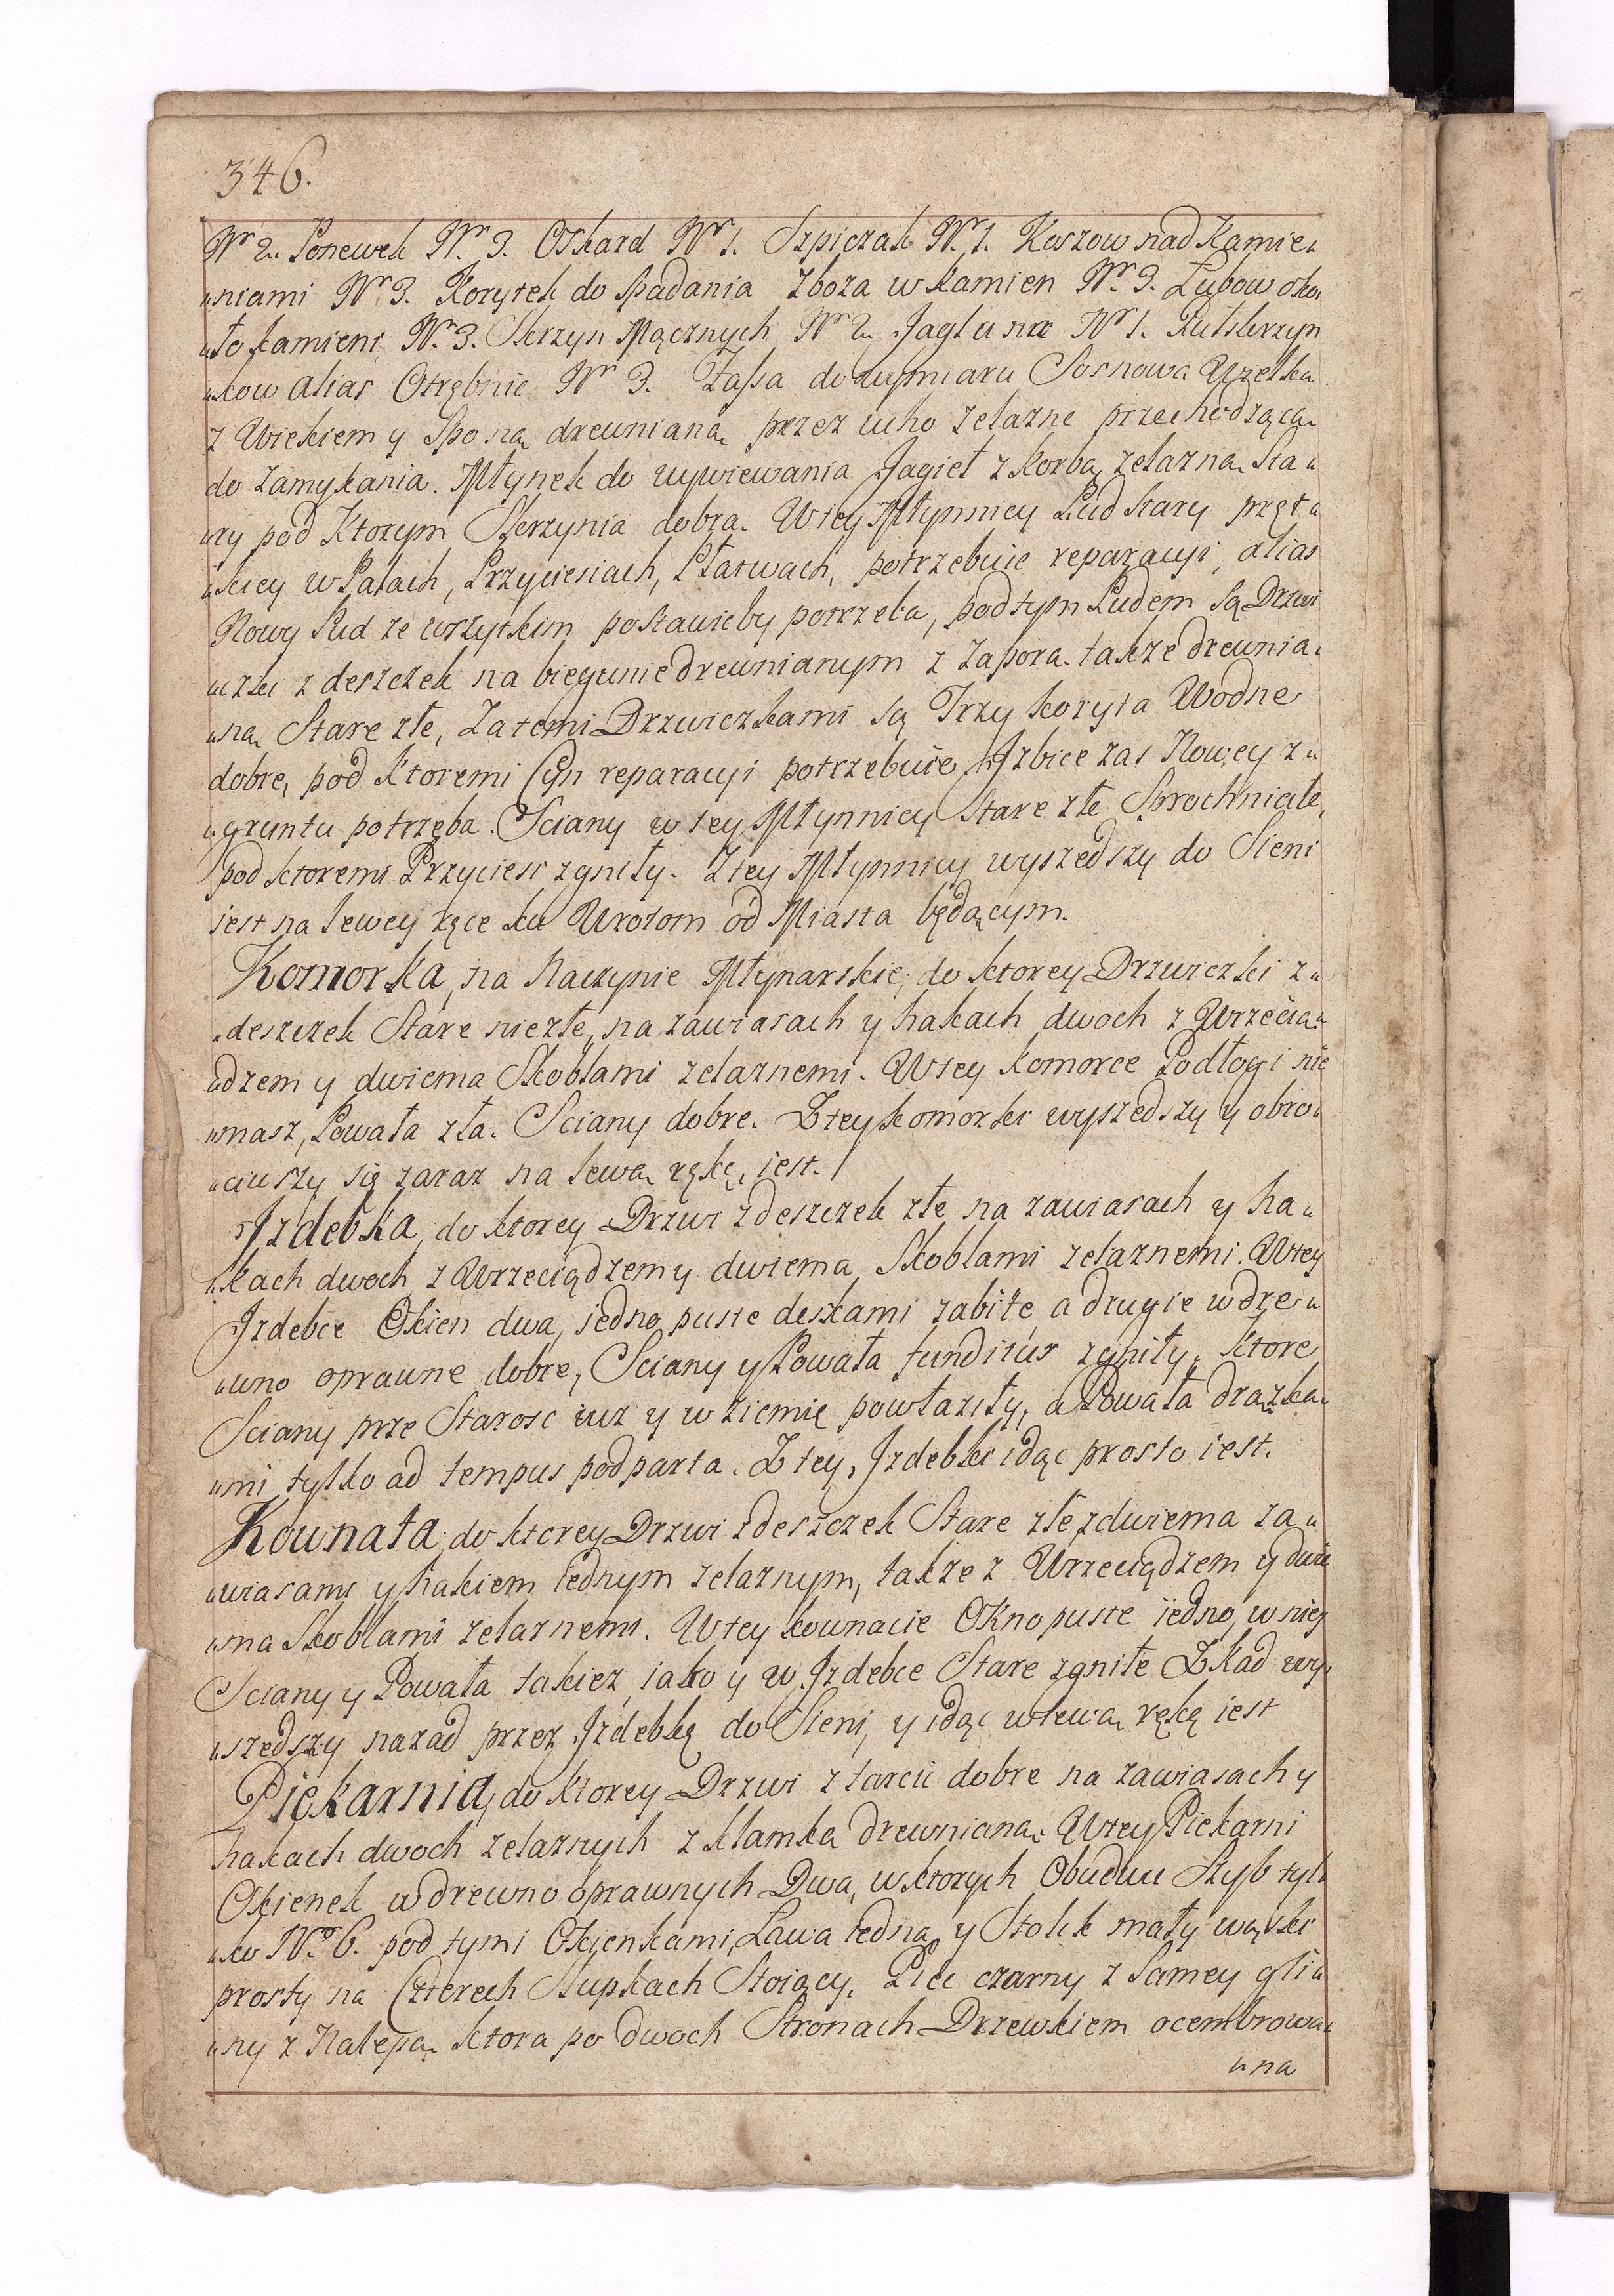 346.
Nr 2. Ponewek Nr. 3. Oskard Nr 1. Szpiczak N. 1. Koszow nad Kamie„
„niami Nr 3. Korytek do spadania zboza w kamien Nr. 3. Łubow oko„
„ło kamieni Nr. 3. Skrzyn Mącznych Nr 2. Jaglana Nr 1. Pułskrzyn„
„kow alias Otrębnic Nr 3. Zassa do wymiaru Sosnowa Wielka
z Wiekiem y Sponą drewnianą przez ucho zelazne przechodzącą
do zamykania. Młynek do wywiewania Jagieł z korbą zelazną Sta„
„ry pod Ktorym Skrzynia dobra. W tey Młynnicy Pud stary pręt„
„kiey w Palach, Przyciesiach, Płatwach, potrzebuie reparacyi, alias
Nowy Pud ze wszytkim postawicby potrzeba, pod tym Pudem są Drzwi„
„czki z deszczek na biegunie drewnianym z zaporą takze drewnia„
„ną Stare złe, Za temi Drzwiczkami są Trzy koryta Wodne
dobre, pod Ktoremi Cyn reparacyi potrzebuie, Izbice zas Nowey z„
„gruntu potrzęba. Sciany w tey Młynnicy Stare złe Sprochniałe,
pod ktoremi Przyciesi zgniły. Z tey Młynnicy wyszedszy do Sieni
iest na lewey ręce ku Wrotom od Miasta będącym.
Komorka, na Naczynie Młynarskie, do ktorey Drzwiczki z„
„deszczek Stare niezłe, na zawiasach y hakach dwoch z Wrzecią„
„dzem y dwiema Skoblami zelaznemi. W tey komorce Podłogi nie
„masz, Powała zła. Sciany dobre. Z tey komorki wyszedszy y obro„
„ciwszy się zaraz na lewą rękę, iest.
Izdebka, do ktorey Drzwi z deszczek złe na zawiasach y ha„
„kach dwoch z Wrzeciądzem y dwiema Skoblami zelaznemi. W tey
Izdebce Okien dwa, iedno puste deskami zabite, a drugie w dre„
„wno oprawne dobre, Sciany y Powała funditus zgniły, ktore
Sciany prze Starosc iuz y w ziemię powłaziły, a Powała drązka„
„mi tylko ad tempus podparta. Z tey, Izdebki idąc prosto iest.
Kownata, do ktorey Drzwi z deszczek Stare złe z dwiema za„
„wiasami y hakiem iednym zelaznym, takze z Wrzeciądzem y dwie
„ma Skoblami zelaznemi. W tey kownacie Okno puste iedno, w niey
Sciany y Powała takiez, iako y w Izdebce Stare zgniłe Zkad wy„
„szedszy nazad przez Izdebkę do Sieni, y idąc w lewą rękę iest
Piekarnia, do ktorey Drzwi z tarcic dobre na zawiasach y
hakach dwoch zelaznych z klamką drewnianą. W tey Piekarni
Okienek w drewno oprawnych Dwa, w ktorych Obudwu Szyb tyl„
„ko No. 6. pod tymi Okienkami, Ława iedna y Stolik mały wąski
prosty na Czterech Słupkach Stoiący, Piec czarny z Samey gli„
„ny z Nalepą ktora po dwoch Stronach Drzewkiem ocembrowa„
„na